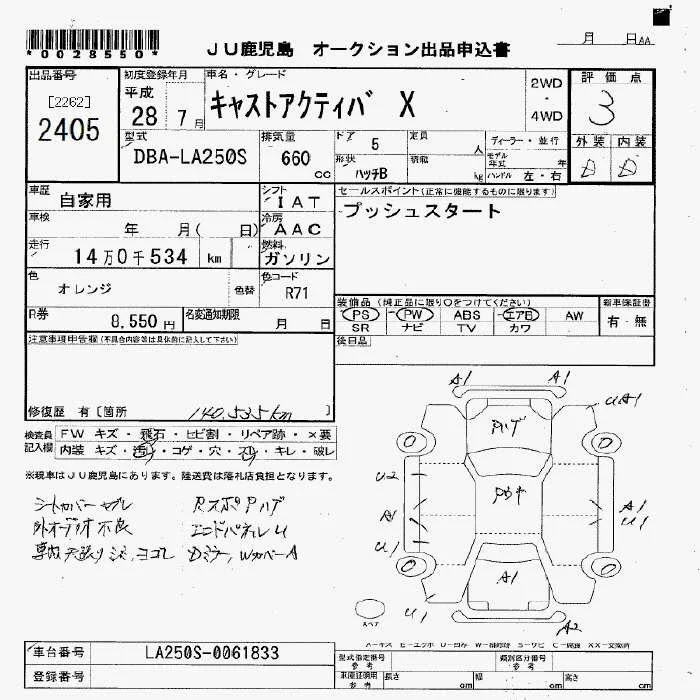 *0028550*
JU鹿児島 オークション出品申込書
月 日AA
出品番号
[2262]
2405
初度登録年月
平成
28 7月
車名・グレード
キャストアクティバ X
2WD
・
4WD
評価点
3
外装 内装
D D
型式
DBA-LA250S
排気量
660
cc
ドア 5
形状 ハッチB
定員 人
積載 kg
ディーラー・並行
モデル年式 年
ハンドル 左・右
車歴
自家用
シフト
IAT
車検
年 月( 日)
冷房
AAC
走行
14万0千534 km
燃料
ガソリン
色
オレンジ
色替
色コード
R71
R券
8,550円
名変通知期限
月 日
セールスポイント(正常に機能するものに限ります)
プッシュスタート
装備品(純正品に限り○をつけてください)
PS PW ABS エアB AW
SR ナビ TV カワ
新車保証書
有・無
後日品
注意事項申告欄(不具合内容等は具体的に記入して下さい)
修復歴 有[箇所 140,535km ]
検査員
記入欄
FW キズ・飛石・ヒビ割・リペア跡・×要
内装 キズ・汚レ・コゲ・穴・スレ・キレ・破レ
※現車はJU鹿児島にあります。陸送費は落札店負担となります。
シートカバー
外オーディオ不良
エンドパネルU
A1 A1
UA1
U2
A1
U1
A1
U1
A1
U1
A2
スペア
A-キズ E-エクボ U-凹み
車台番号
LA250S-0061833
登録番号
型式指定番号
参考
類別区分番号
参考
車庫証明用
参考
長さ cm
幅 cm
高さ cm